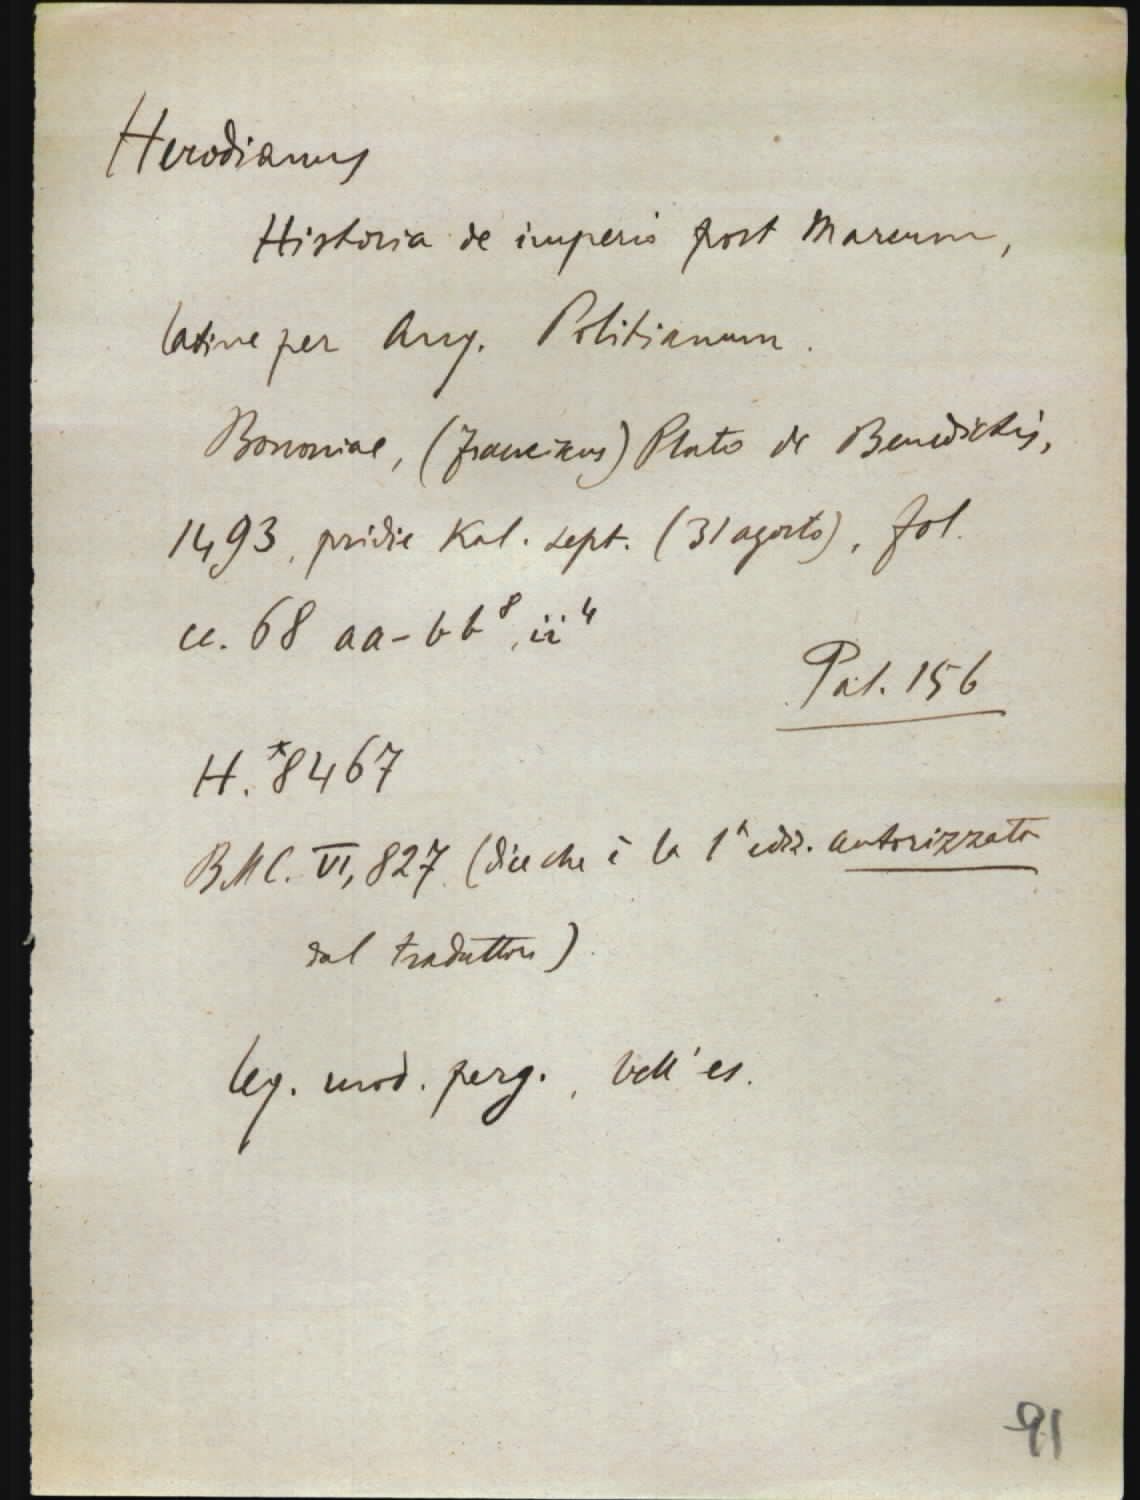 Herodianus
Historia de imperio post Marcum,
latine per Ang. Politianum.
Bononiae, (Franciscus) Plato de Benedictis,
1493, pridie Kal. sept. (31 agosto), fol.
cc. 68 aa-bb⁸, ii⁴
Pal. 156
H. *8467
BMC. VI, 827 (dice che è la 1ª ediz. autorizzata
dal traduttore)
leg. mod. perg., bell'es.
91